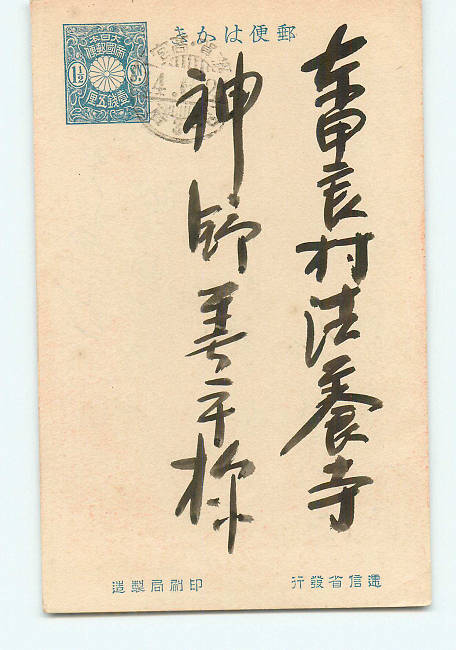 郵便はかき
大日本
帝國郵便
1½ SN
壹錢五厘
東甲良村法養寺
神 善平様
遞信省發行
印刷局製造